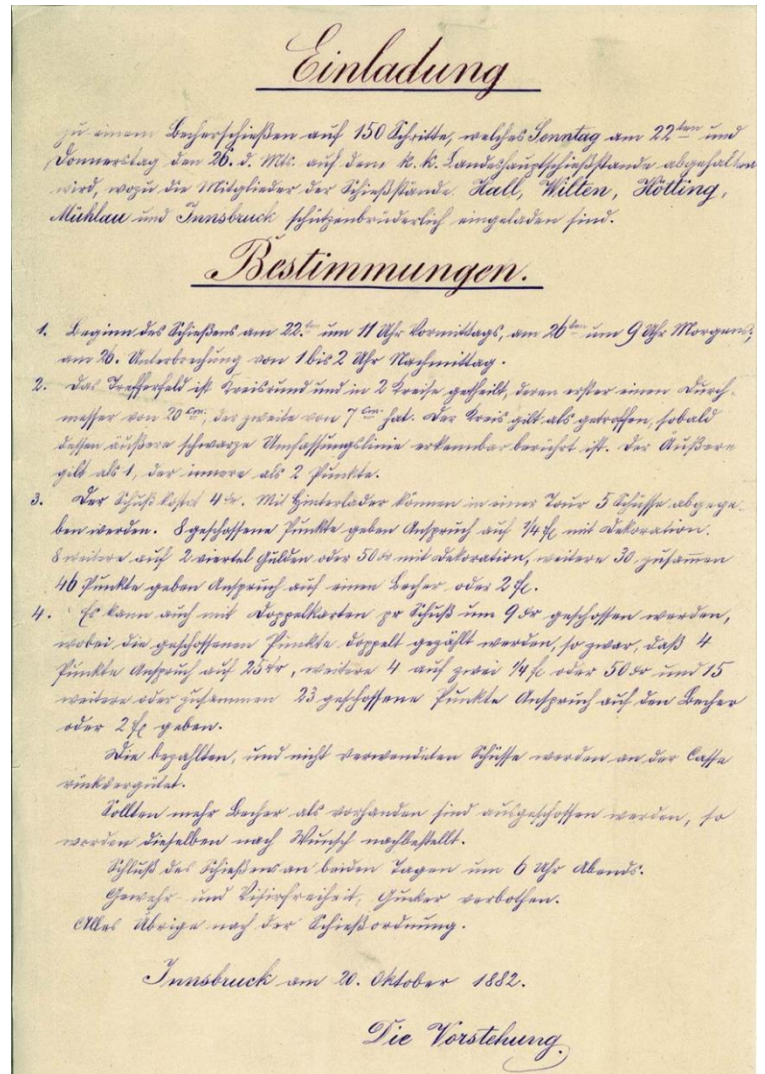 Einladung
zu einem Becherschießen auf 150 Schritte, welches Sonntag am 22ten und
Donnerstag den 26. d. Mts. auf dem k. k. Landeshauptschießstande abgehalten
wird, wozu die Mitglieder der Schießstände Hall, Wilten, Hötting,
Mühlau und Innsbruck schützenbrüderlich eingeladen sind.
Bestimmungen.
1. Beginn des Schießens am 22.ten um 11 Uhr Vormittags, am 26ten um 9 Uhr Morgens;
am 26. Unterbrechung von 1 bis 2 Uhr Nachmittag.
2. Das Trefferfeld ist kreisrund und in 2 Kreise getheilt, deren erster einen Durch-
messer von 20 cm, der zweite von 7 cm hat. Der Kreis gilt als getroffen, sobald
dessen äußere schwarze Umfassungslinie erkennbar berührt ist. Der Äußere
gilt als 1, der innere als 2 Punkte.
3. Der Schuß kostet 4 kr. Mit Hinterlader können in einer Tour 5 Schüsse abgege-
ben werden. 8 geschossene Punkte geben Anspruch auf 1/4 fl mit Dekoration.
8 weitere auf 2 viertel Gulden oder 50 kr mit Dekoration, weitere 30, zusammen
46 Punkte geben Anspruch auf einen Becher oder 2 fl.
4. Es kann auch mit Doppelkarten pr Schuß um 9 kr geschossen werden,
wobei die geschossenen Punkte doppelt gezählt werden, so zwar, daß 4
Punkte Anspruch auf 25 kr, weitere 4 auf zwei 1/4 fl oder 50 kr und 15
weitere oder zusammen 23 geschossene Punkte Anspruch auf den Becher
oder 2 fl geben.
Die bezahlten, und nicht verwendeten Schüsse werden an der Cassa
rückvergütet.
Sollten mehr Becher als vorhanden sind ausgeschossen werden, so
werden dieselben nach Wunsch nachbestellt.
Schluß des Schießens an beiden Tagen um 6 Uhr Abends.
Gewehr- und Visirfreiheit, Gucker verbothen.
Alles Übrige nach der Schießordnung.
Innsbruck am 20. Oktober 1882.
Die Vorstehung.